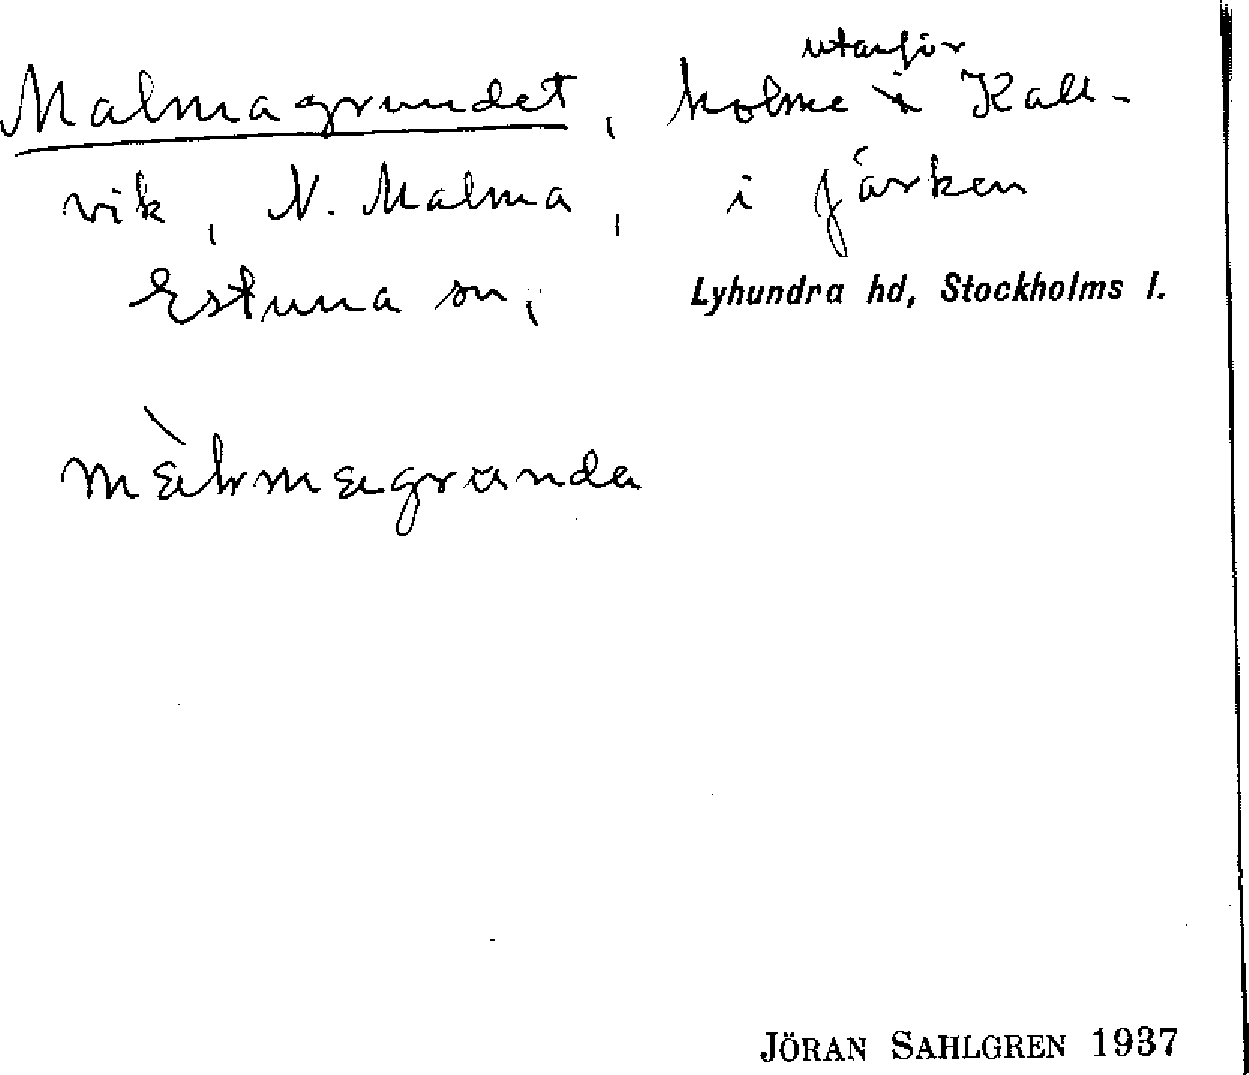 utanför
Malmagrundet, holme i Kall-
vik, N. Malma, i Järken
Estuna sn,
Lyhundra hd, Stockholms l.
JÖRAN SAHLGREN 1937